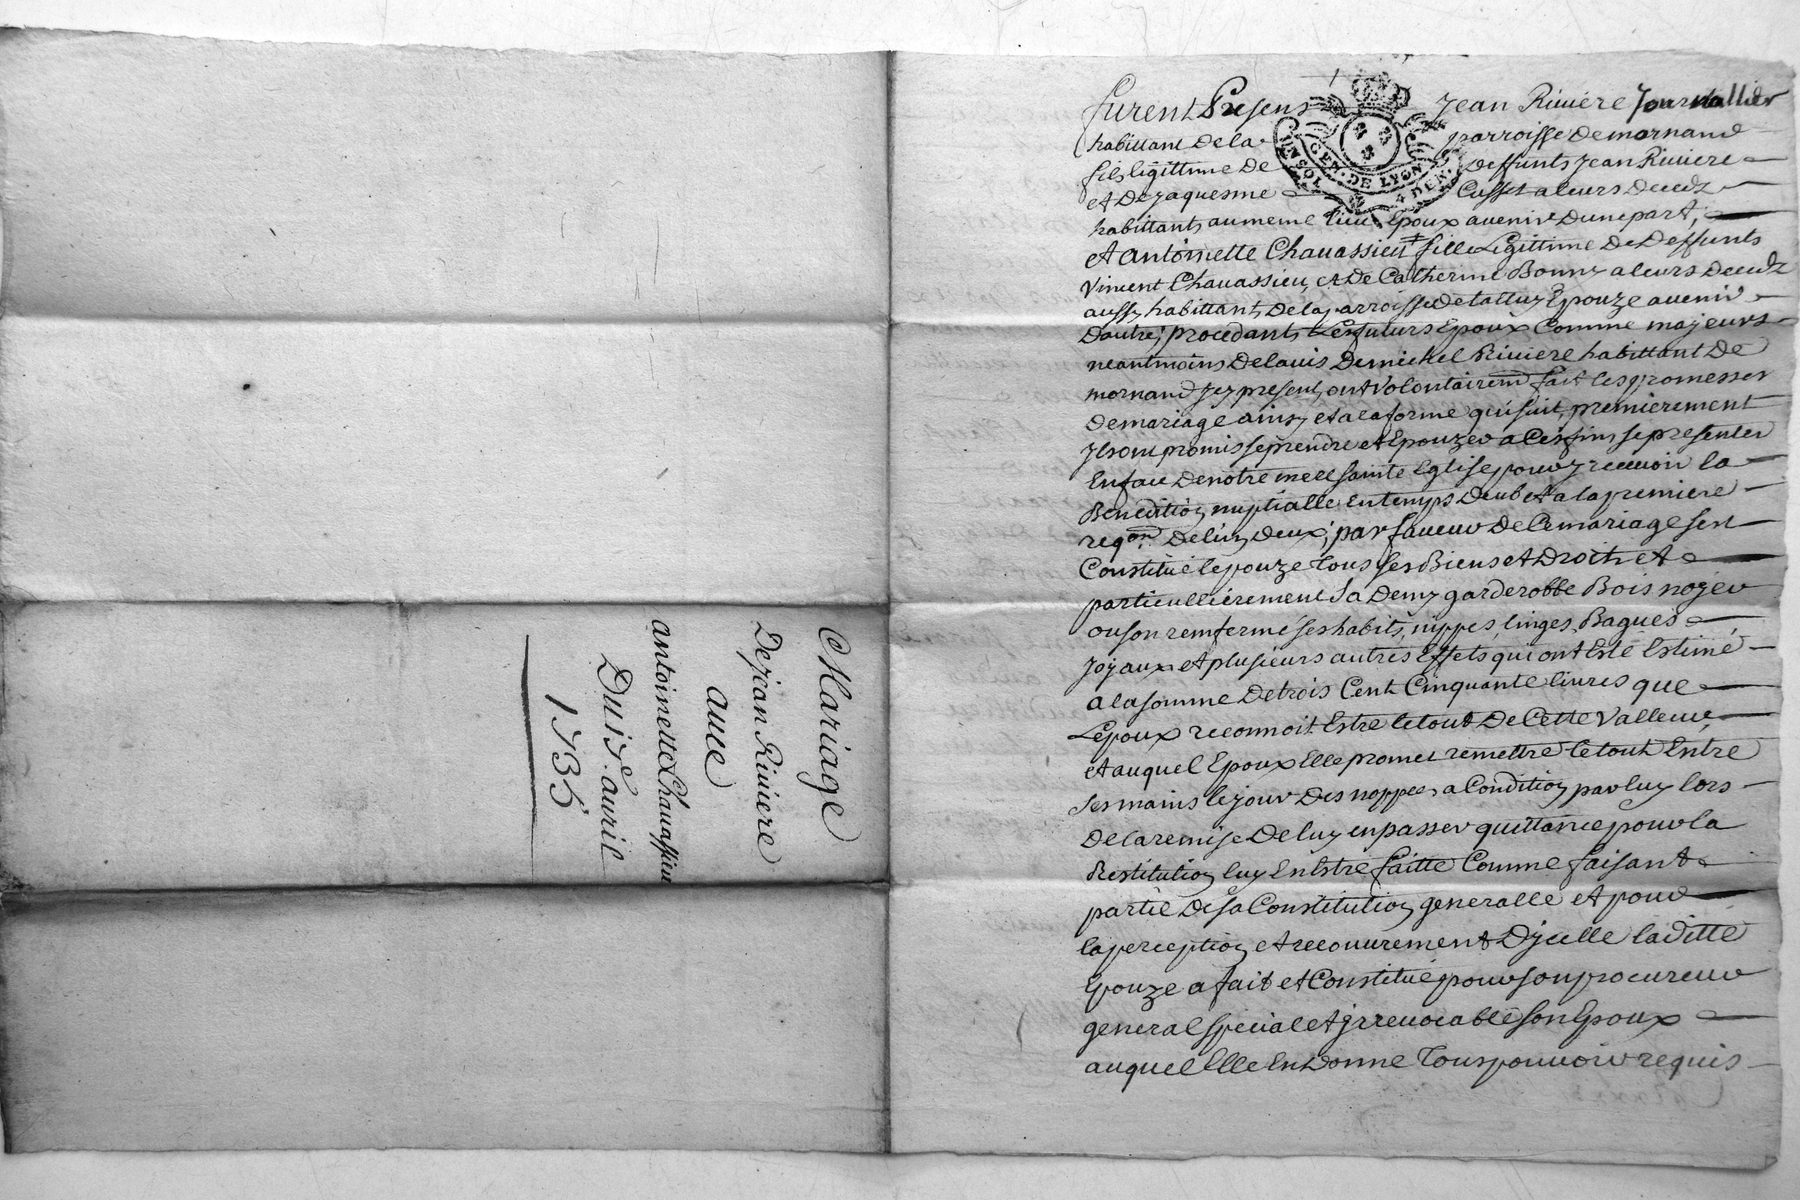 Mariage
De jean Riviere
avec
antoinette Chauassieu
Du 15e avril
1735
furent Presens Jean Riuiére Journallier
habittant de la parroisse de mornand
fils légittime de deffunts Jean Riuiere
et de jaquesme Cusset a leurs deceds
habittants au meme lieu Epoux auenir d'une part,
et antoinette Chauassieu fille Légittime de deffunts
Vincent Chauassieu, et de Catherine Bonny a leurs deceds
aussy habittants de la parroisse de talluy Epouze auenir
dautre, procedants les futurs Epoux Comme majeurs
neantmoins de lauis de michel Riuiere habittant de
mornand jcy present, ont Volontairemt fait les promesses
de mariage ainsy et a la forme qui suit, premierement
Ils ont promis se prendre et Epouzer a Ces fins se presenter
En face de notre mere sainte Eglise pour y receuoir la
Benedition nuptialle en temps deub et a la premiere
reqon de lun deux; par faueur de Ce mariage sest
Constitué lepouze tous ses Biens et Droits et
particullierement sa demy garderobbe Bois noyer
ou son renfermé ses habits, nippes, linges, Bagues
Joyaux et plusieurs autres Effets qui ont Esté Estimé
a la somme de trois Cent Cinquante liures que
Lepoux reconnoit Estre le tout de Cette Valleur,
et auquel Epoux Elle promet remettre le tout Entre
ses mains le jour des noppces a Condition par luy lors
de la remise de luy en passer quittance pour la
Restitution luy En Estre faitte Comme faisant
partie de sa Constitution generalle et pour
la perception et recouurement d'jcelle laditte
Epouze a fait et Constitué pour son procureur
general special et jrreuocable son Epoux
auquel Elle En donne tous pouuoir requis
GEN. DE LYON